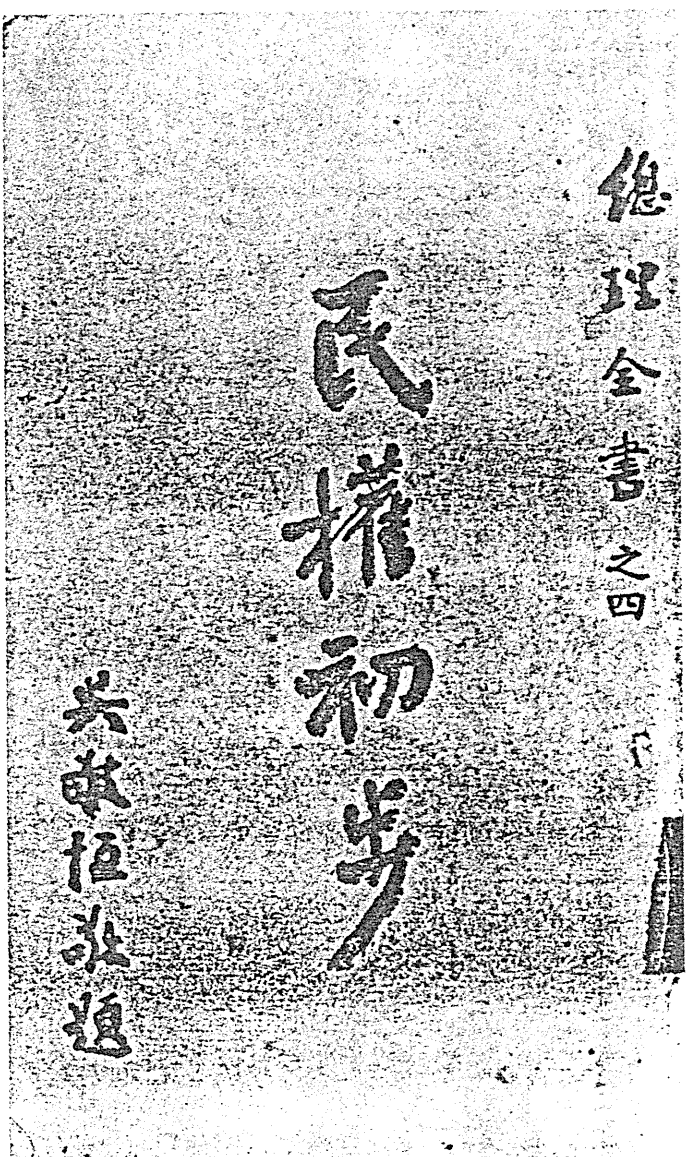 總理全書之四
民權初步
吳敬恒敬題